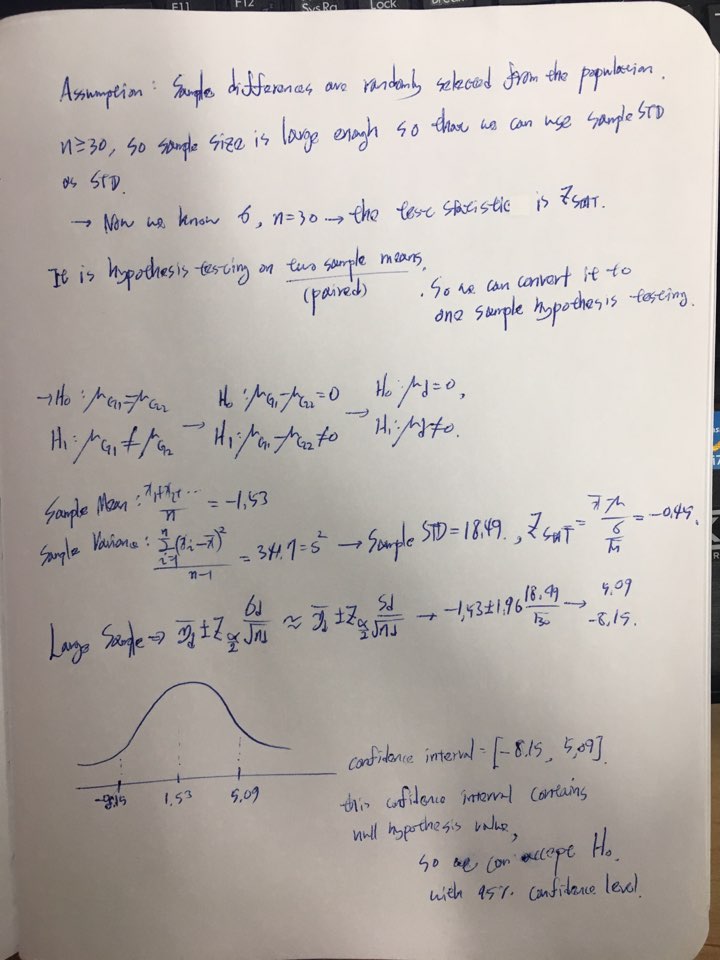 F11 F12 SysRq Lock Break
Assumption : Sample differences are randomly selected from the population.
n≥30, so sample size is large enough so that we can use sample STD
as STD.
→ Now we know σ, n=30 → the test statistic is Z_STAT.
It is hypothesis testing on two sample means.
(paired)
. So we can convert it to
one sample hypothesis testing.
→ H₀ : μ_G1=μ_G2 → H₀ : μ_G1-μ_G2=0 → H₀ : μd=0,
H₁ : μ_G1≠μ_G2 H₁ : μ_G1-μ_G2≠0 H₁ : μd≠0.
Sample Mean : (x₁+x₂+...)/n = -1,53
Sample Variance : Σ_{i=1}^{n}(x_i-x̄)²/(n-1) = 341.7=s² → Sample STD=18.49. , Z_STAT = (x̄-μ)/(σ/√n) = -0.45.
Large Sample ⇒ x̄_d ± Z_{α/2} σd/√nd ≈ x̄_d ± Z_{α/2} Sd/√nd → -1,53±1,96 18.49/√30 → 5.09
-8,15.
-8,15 1,53 5.09
confidence interval = [-8.15, 5,09].
this confidence interval contains
null hypothesis value,
so we can accept H₀.
with 95% confidence level.